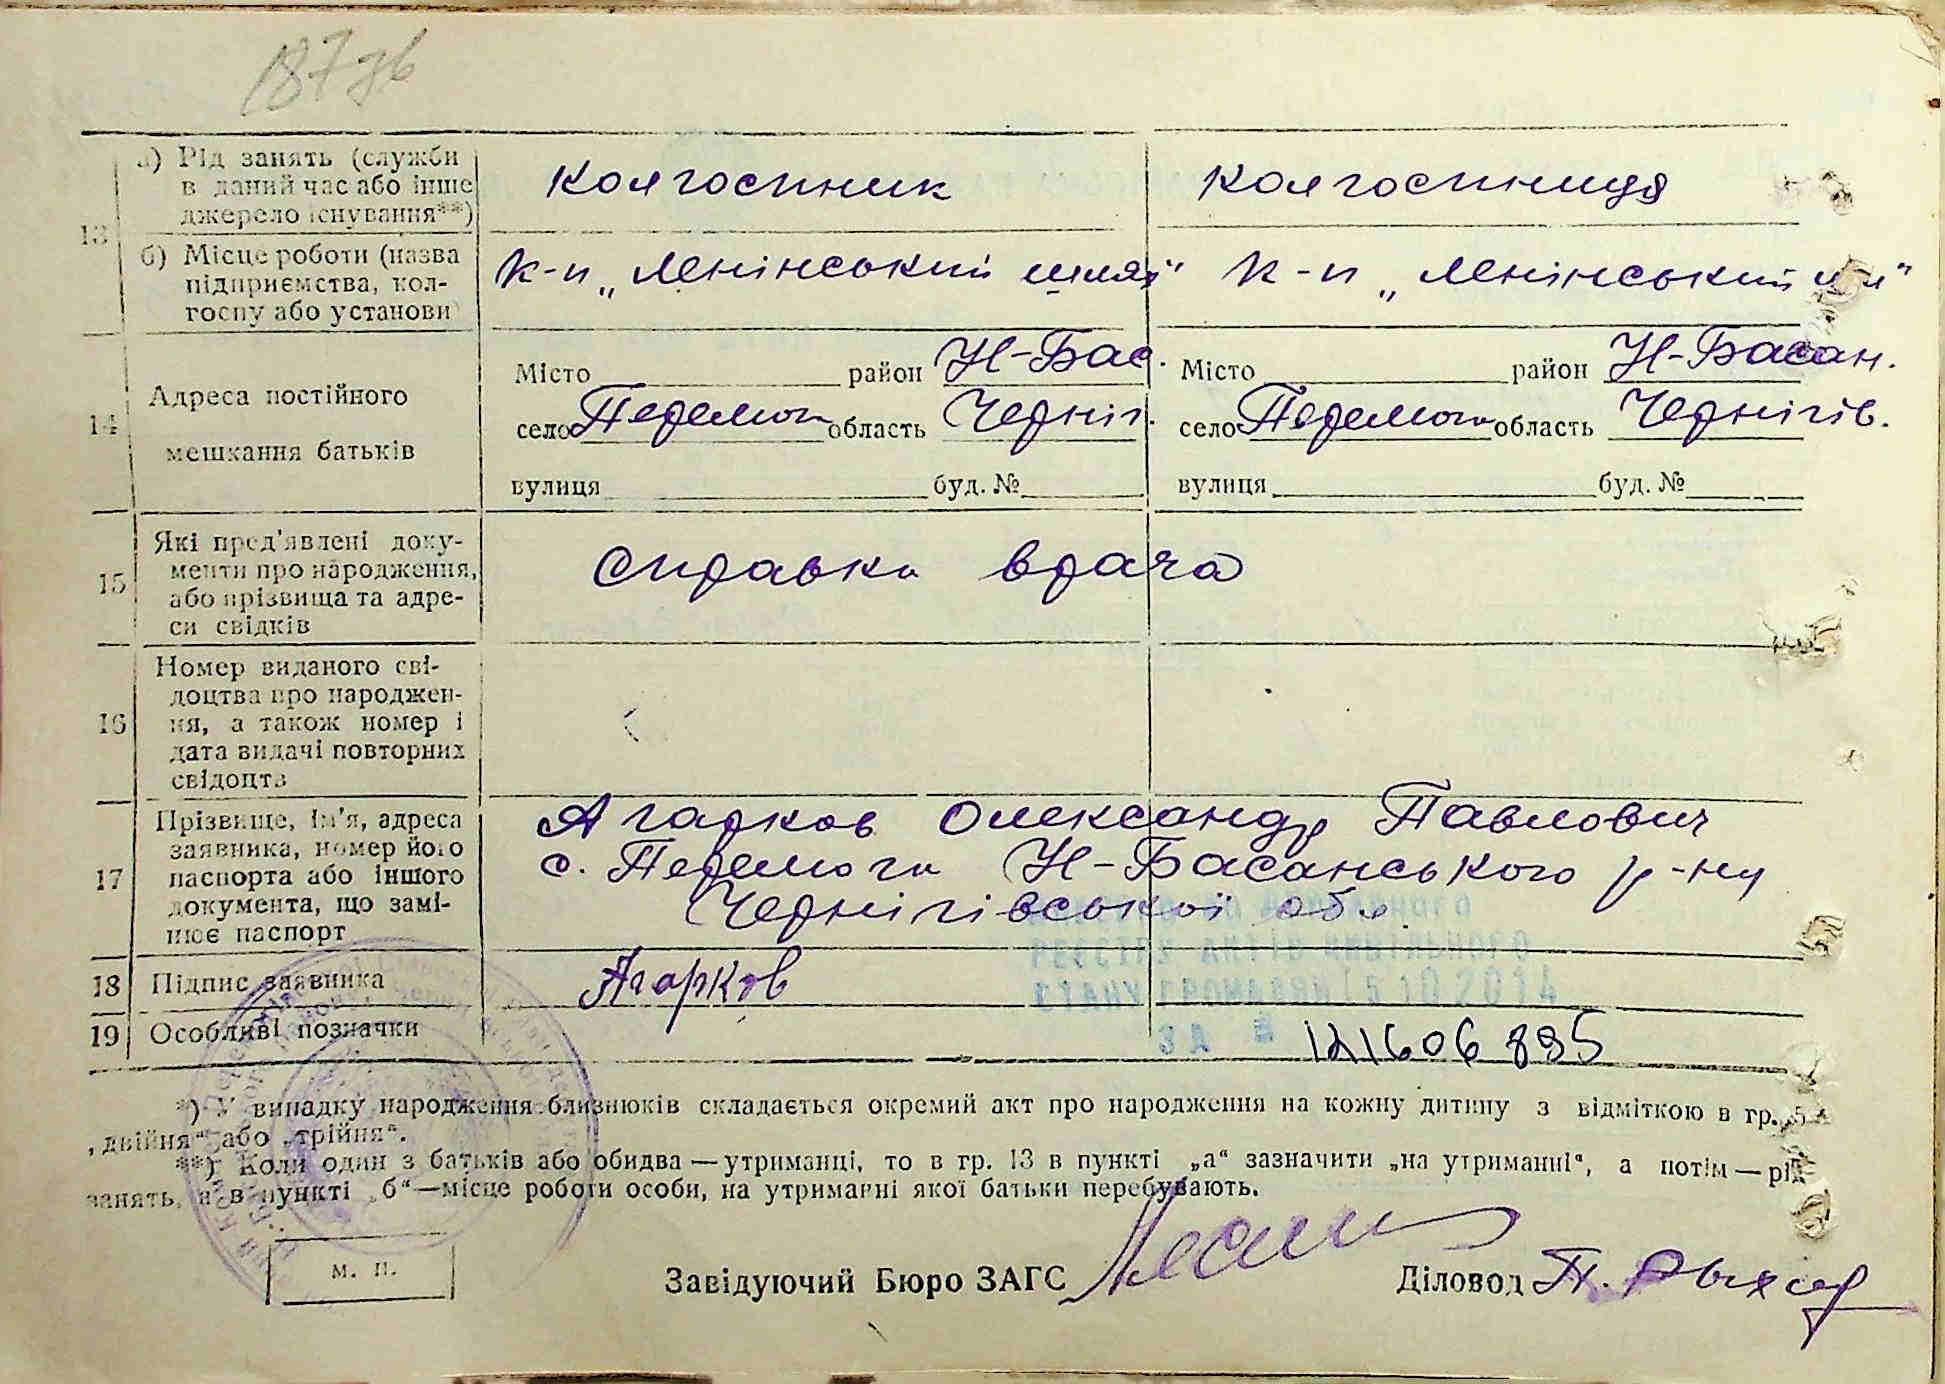 187 зв
13
а) Рід занять (служби в даний час або інше джерело існування**)
колгоспник
колгоспниця
б) Місце роботи (назва підприємства, колгоспу або установи)
к-п „Ленінський шлях“
к-п „Ленінський
14
Адреса постійного мешкання батьків
Місто район Н-Бас.
село Перемога область Черніг.
вулиця буд. №
Місто район Н-Басан.
село Перемога область Чернігів.
вулиця буд. №
15
Які пред'явлені документи про народження, або прізвища та адреси свідків
справка врача
16
Номер виданого свідоцтва про народження, а також номер і дата видачі повторних свідоцтв
17
Прізвище, ім'я, адреса заявника, номер його паспорта або іншого документа, що замінює паспорт
Агарков Олександр Павлович
с. Перемога Н-Басанського р-ну
Чернігівської обл
РЕЄСТРУ АКТІВ ЦИВІЛЬНОГО
СТАНУ ГРОМАДЯН 15 10 2014
ЗА №
18
Підпис заявника
Агарков
19
Особливі позначки
121606895
*) У випадку народження близнюків складається окремий акт про народження на кожну дитину з відміткою в гр. 5
„двійня“ або „трійня“.
**) Коли один з батьків або обидва — утриманці, то в гр. 13 в пункті „а“ зазначити „на утриманні“, а потім — рід
занять, а в пункті „б“ — місце роботи особи, на утриманні якої батьки перебувають.
м. п.
Завідуючий Бюро ЗАГС
Діловод П.